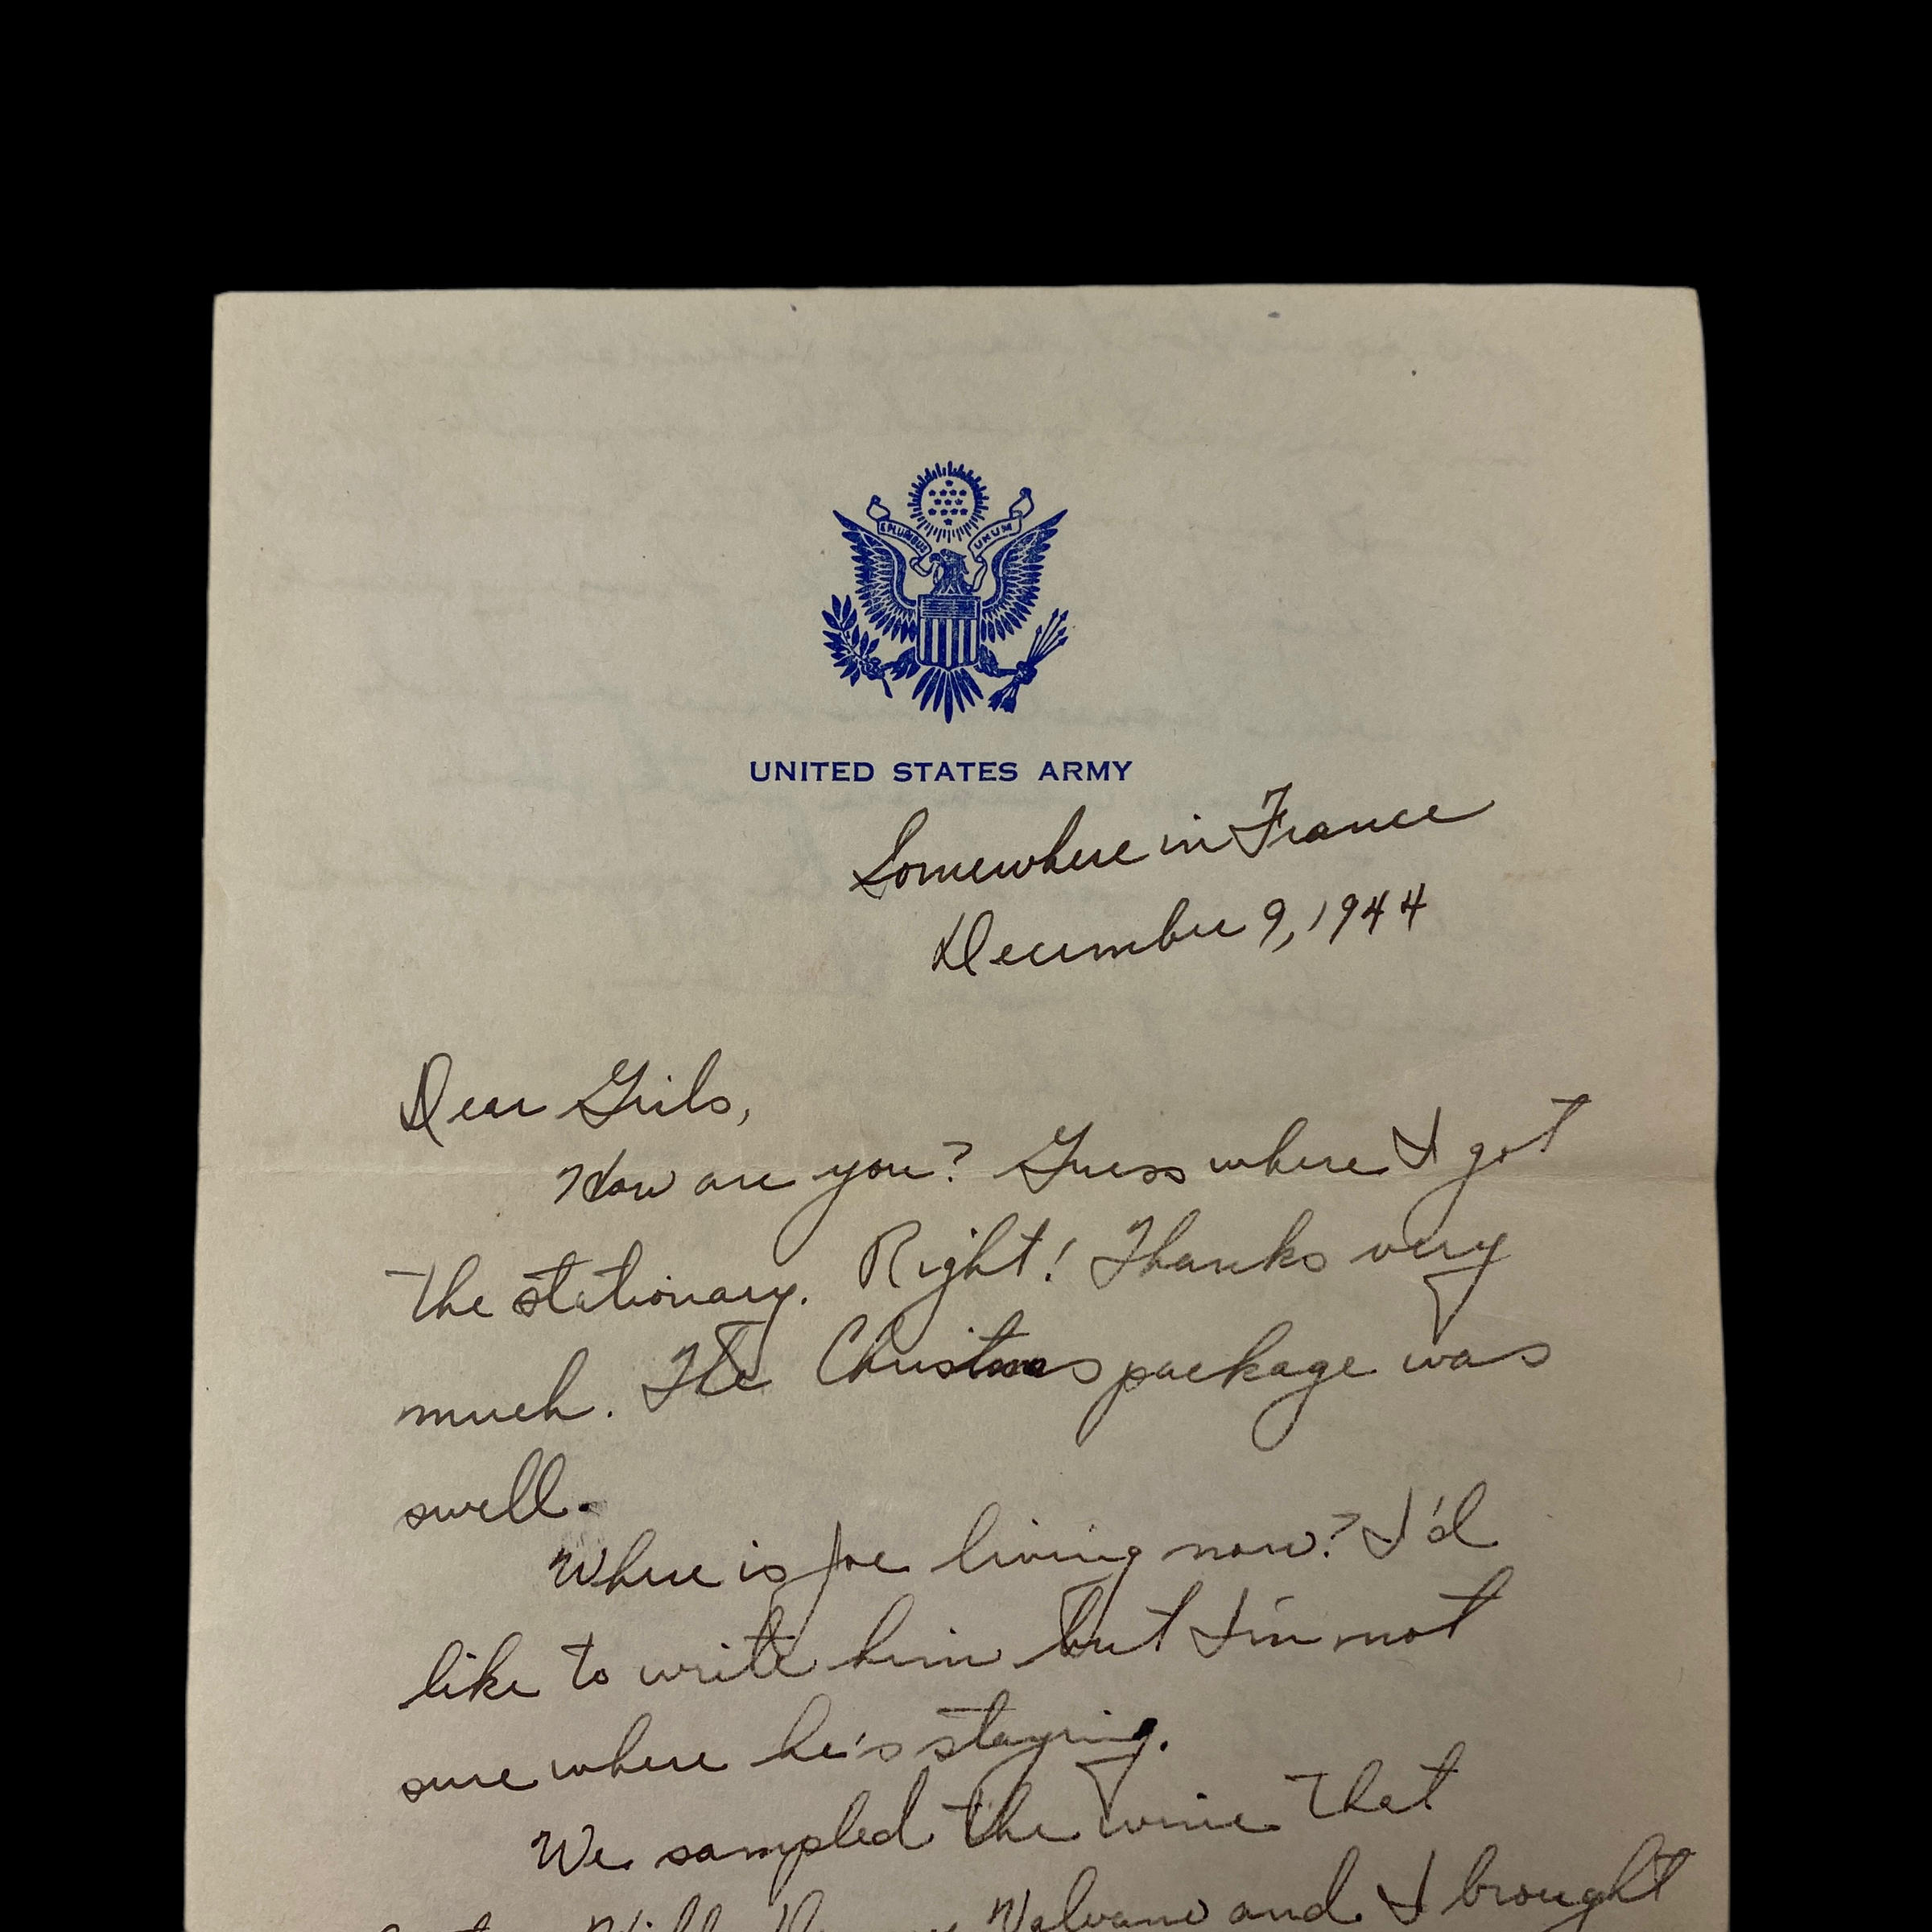 E PLURIBUS UNUM
UNITED STATES ARMY
Somewhere in France
December 9, 1944
Dear Girls,
How are you? Guess where I got
the stationary. Right! Thanks very
much. The Christmas package was
swell.
Where is Joe living now? I'd
like to write him but I'm not
sure where he's staying.
We sampled the wine that
and I brought